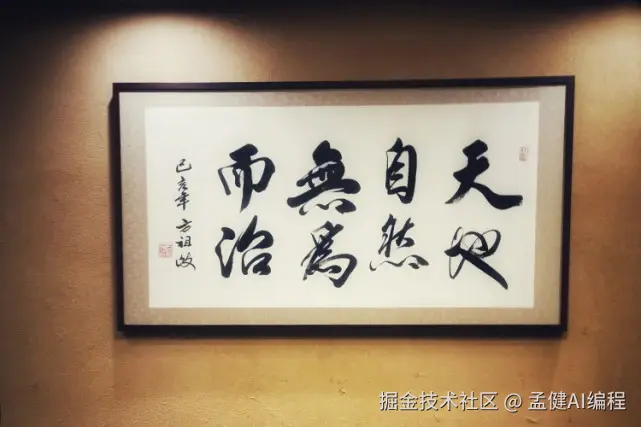 天地
自然
無為
而治
己亥年 方祖岐
掘金技术社区 @ 孟健AI编程